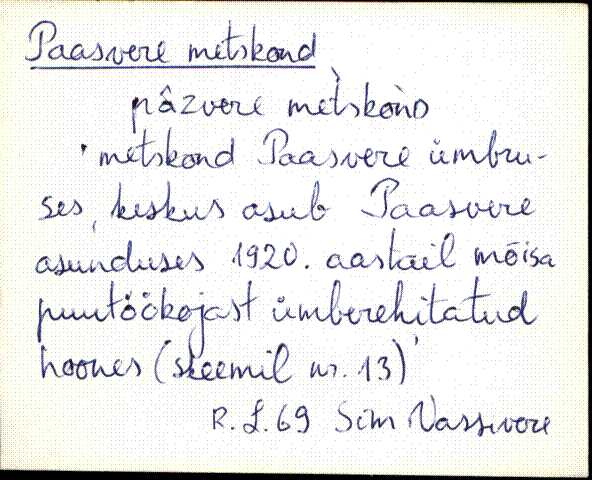 Paasvere metskond
pâzvere mètskòǹᴅ
'metskond Paasvere ümbru-
ses, keskus asub Paasvere
asunduses 1920. aastail mõisa
puutöökojast ümberehitatud
hoones (skeemil nr. 13)'
R. L. 69 Sim Vassevere